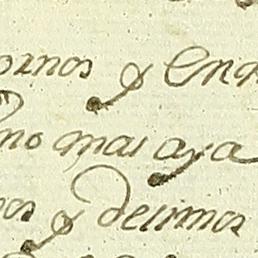 ornos y en
no mas aya
os y decimos